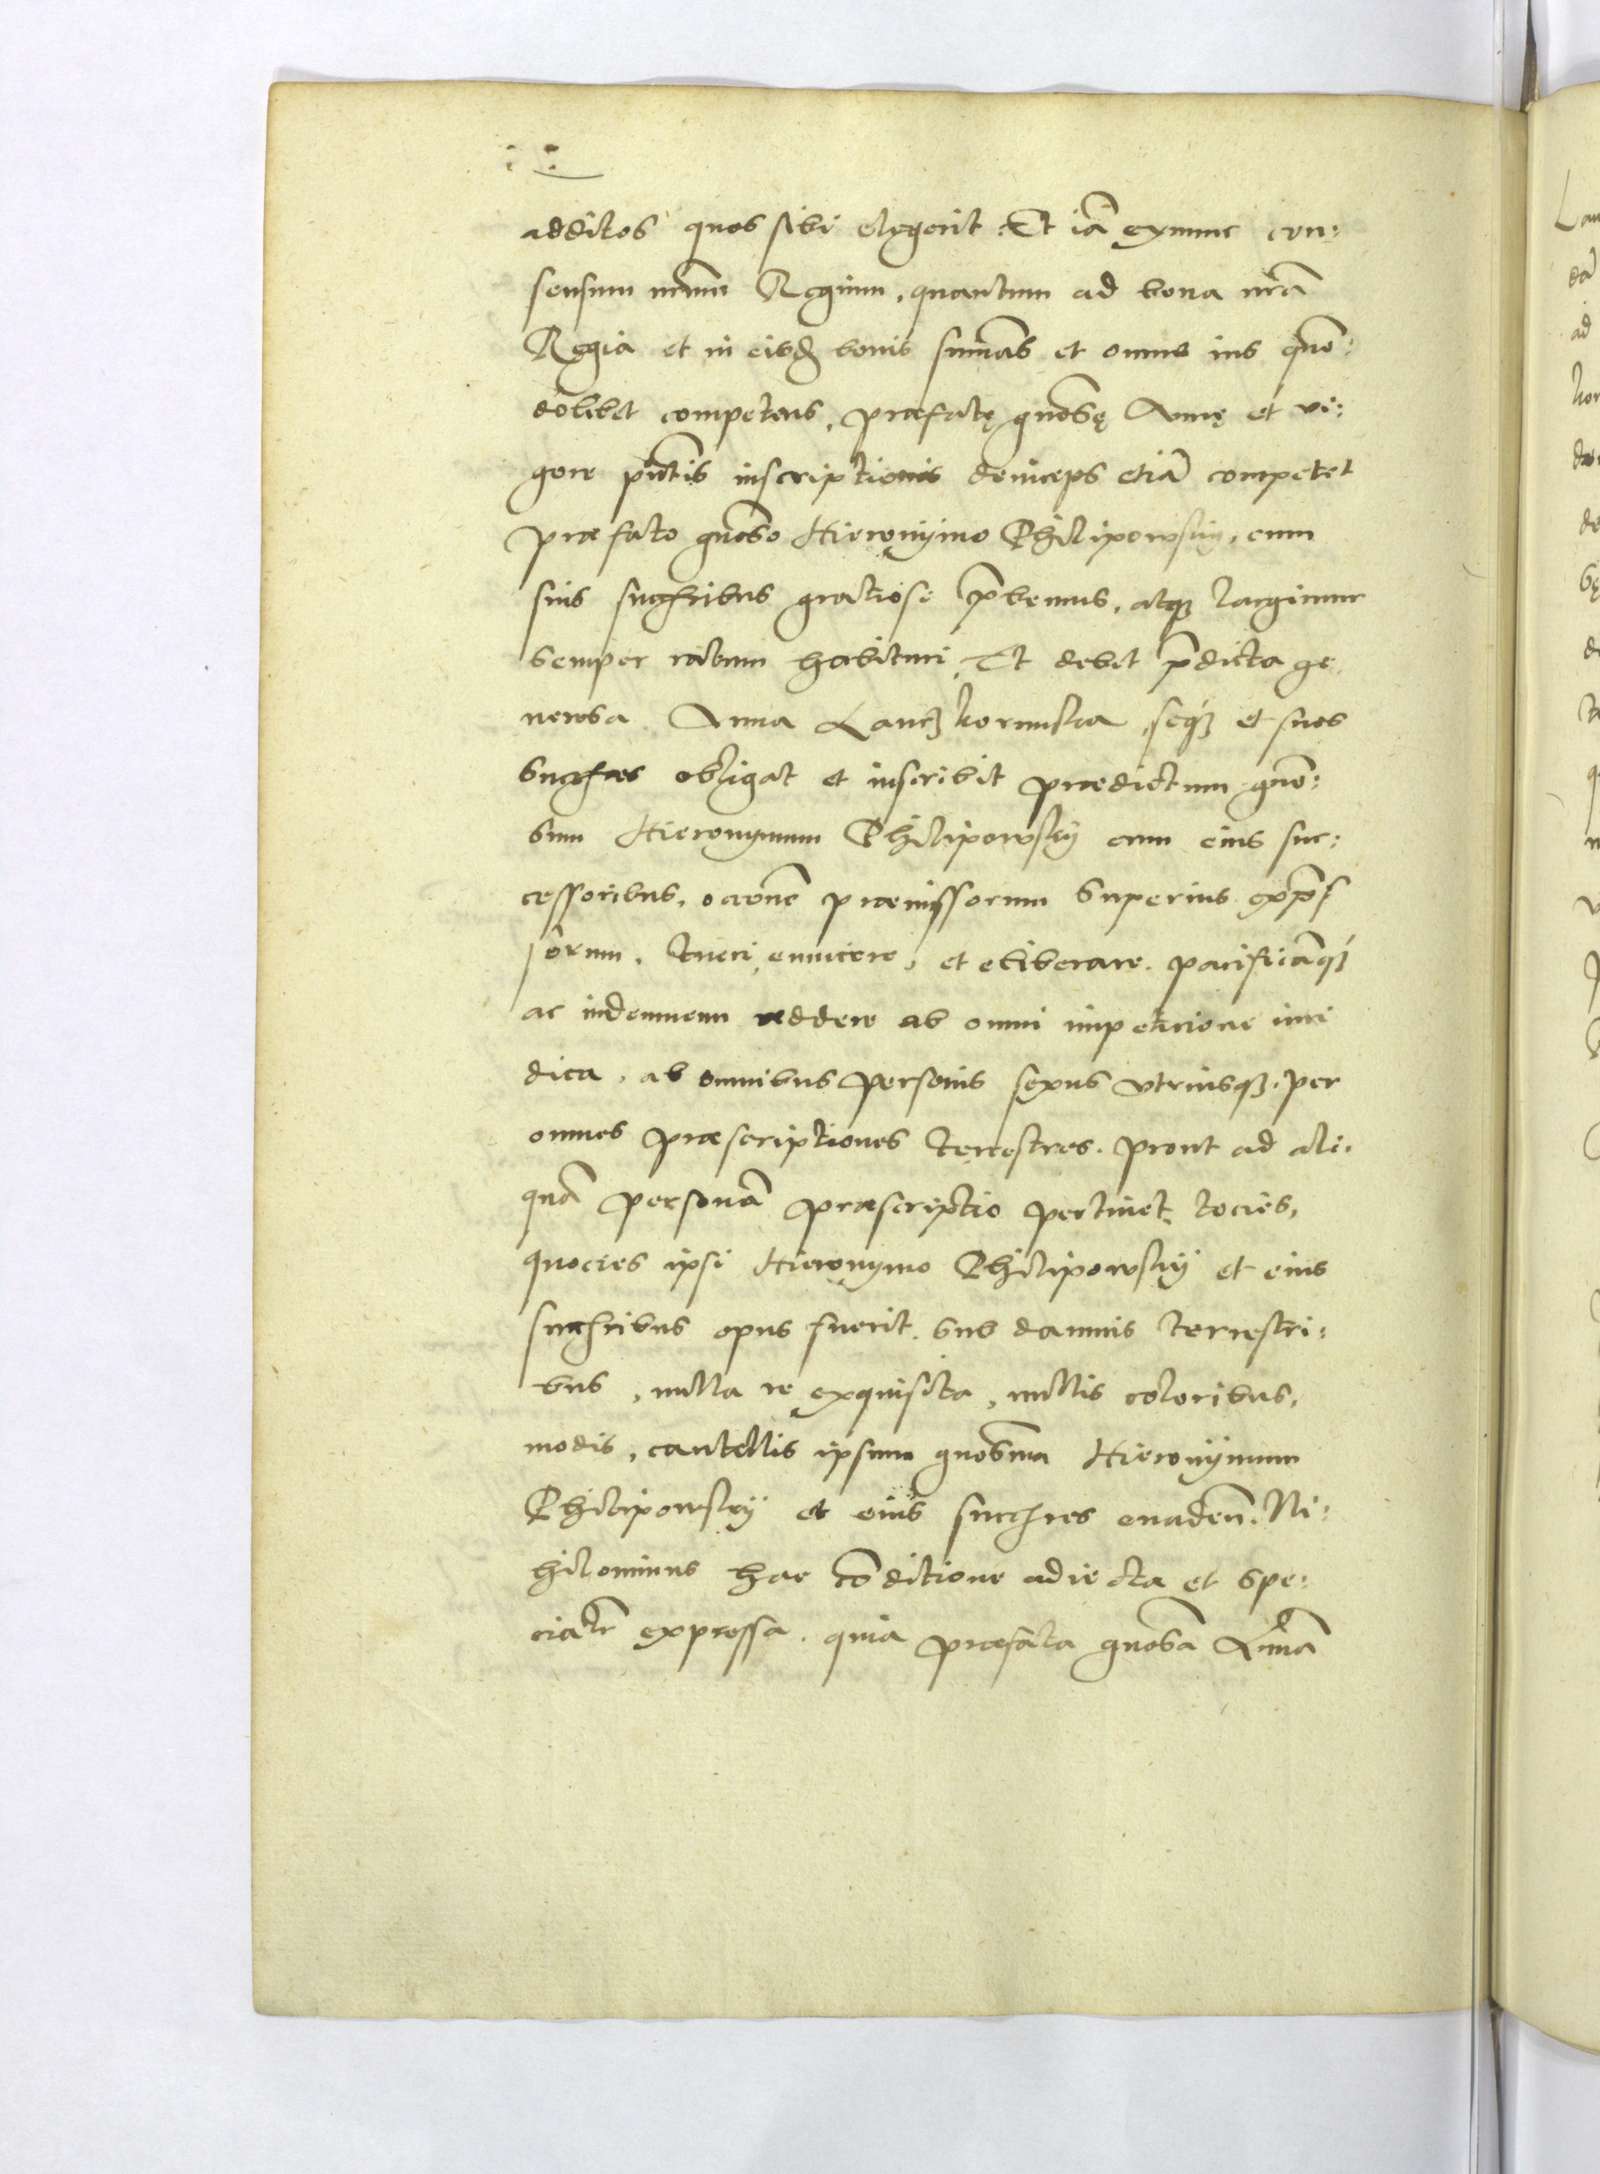 additos quos sibi elegerit. Et iā exnunc con:
sensum nr̄um Regium, quantum ad bona nrā
Regia et in eisdē bonis summas et omne ius quo:
dolibet competens, præfatę gnosę Annę et vi:
gore pn̄tis inscriptionis deinceps etiā competet
præfato gnoso Hieronymo Philipowsky, cum
suis succribus gratiose p̄bemus, atq largimur
semper ratum habituri. Et debet p̄dicta ge
nerosa Anna Lanczkorunska, seq et suos
succres obligat et inscribit prædictum gno:
sum Hieronymum Philipowsky cum eius suc:
cessoribus, ocone præmissorum superius exp̄s
sorum, tueri, euincere, et eliberare. pacificāq
ac indemnem reddere ab omni impeticione iuri
dica, ab omnibus personis sexus vtriusq, per
omnes præscriptiones terrestres. prout ad ali:
quā personā præscriptio pertinet, tocies,
quocies ipsi Hieronymo Philipowsky et eius
succribus opus fuerit. sub damnis terrestri:
bus, nulla re exquisita, nullis coloribus,
modis, cautellis ipsum gnosum Hieronymum
Philipowsky et eius succres euaden̄. Ni:
hilominus hac cōditione adiecta et spe:
cialr expressa. quia præfata gnosa Anna